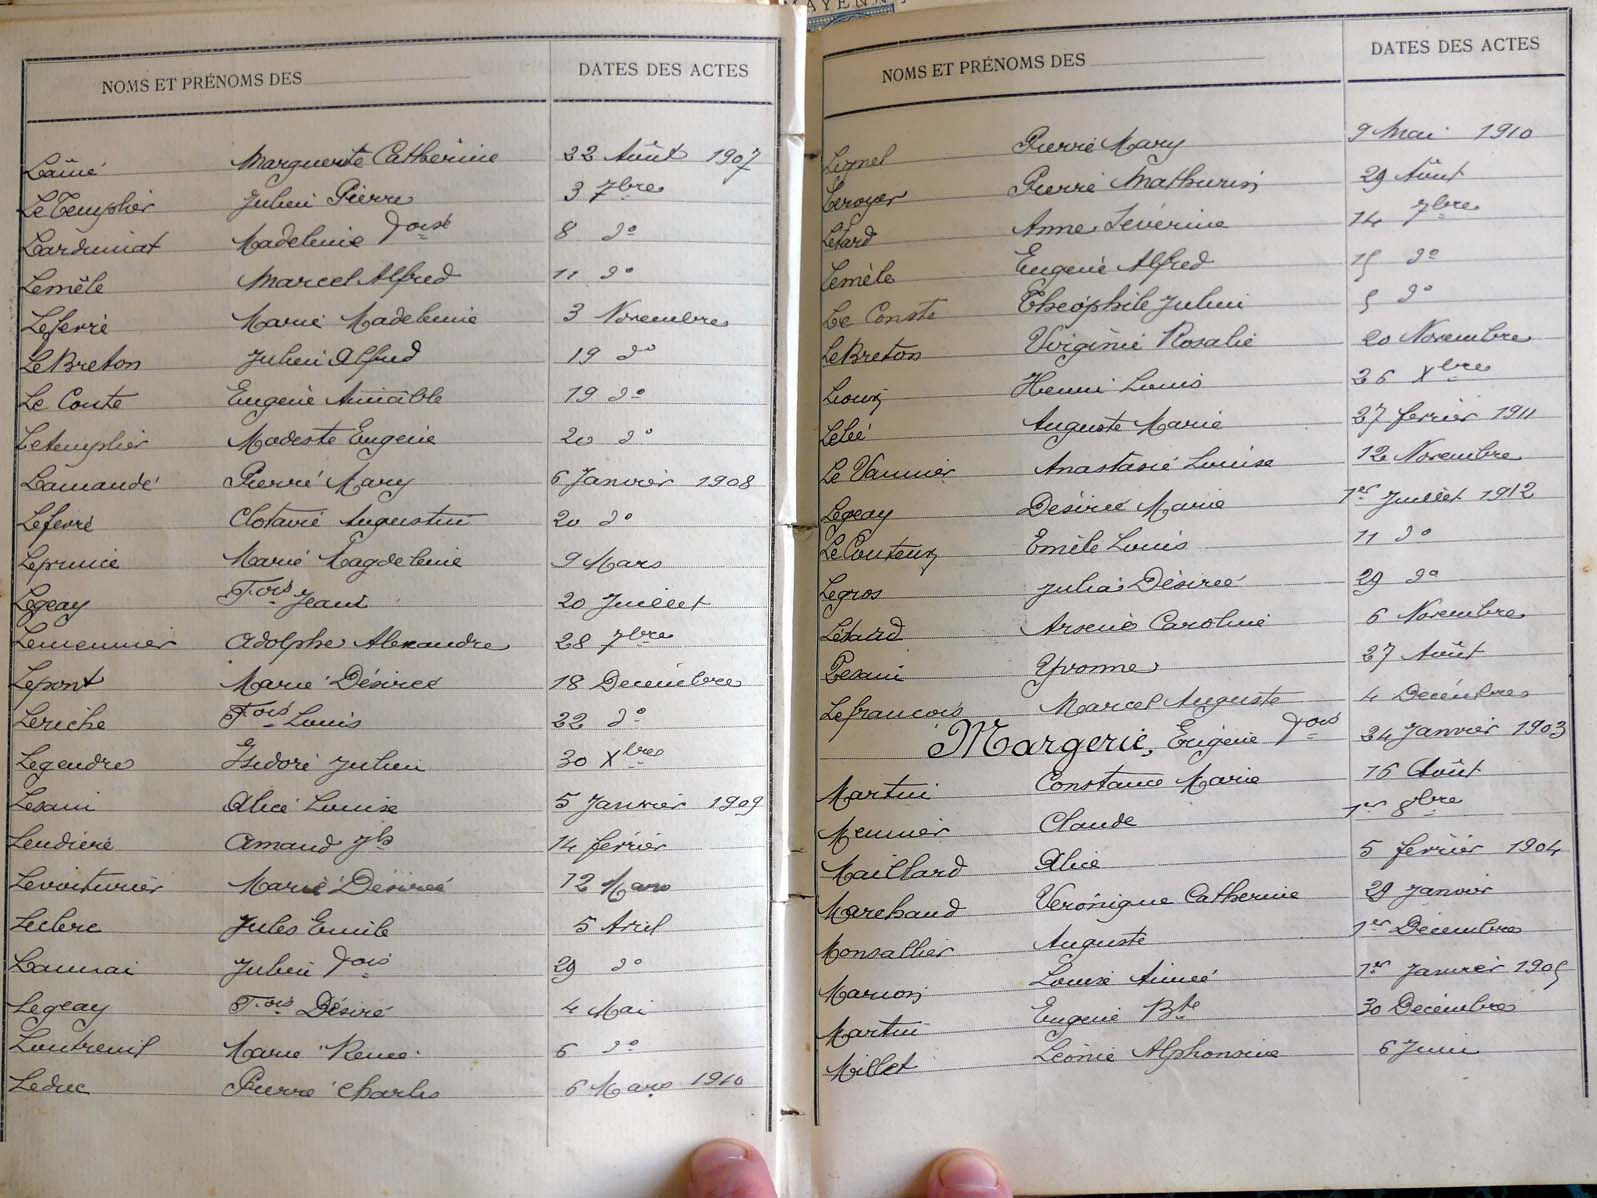 MAYENNE
NOMS ET PRÉNOMS DES
DATES DES ACTES
Lainé Marguerite Catherine 22 Août 1907
LeTemplier Julien Pierre 3 7bre
Larduinat Madeleine Foise 8 do
Lemêle Marcel Alfred 11 do
Lefevre Marie Madeleine 3 Novembre
LeBreton Julien Alfred 19 do
Le Conte Eugène Aimable 19 do
Letemplier Modeste Eugenie 20 do
Lamandé Pierre Mary 6 Janvier 1908
Lefevre Clotaire Augustin 20 do
Leprince Marie Magdeleine 9 Mars
Legeay Fois Jean 20 Juillet
Lemennier Adolphe Alexandre 28 7bre
Lepont Marie Désirée 18 Decembre
Leriche Fois Louis 22 do
Legendre Isidore Julien 30 Xbre
Lesain Alice Louise 5 Janvier 1909
Lendière Amand Jh 14 février
Levoiturier Marie Désirée 12 Mars
Leclerc Jules Emile 5 Avril
Launai Julien Fois 29 do
Legeay Fois Désiré 4 Mai
Lautreuil Marie Renée 6 do
Leduc Pierre Charles 6 Mars 1910
NOMS ET PRÉNOMS DES
DATES DES ACTES
Pierre Mary 9 Mai 1910
Leroyer Pierre Mathurin 29 Août
Letard Anne Séverine 14 7bre
Lemêle Eugene Alfred 15 do
Le Conste Théophile Julien 5 do
LeBreton Virginie Rosalie 20 Novembre
Lioux Henri Louis 26 Xbre
Lelié Auguste Marie 27 fevrier 1911
Le Vannier Anastasie Louise 12 Novembre
Legeay Désirée Marie 1er Juillet 1912
LeCouteux Emile Louis 11 do
Legros Julia Désirée 29 do
Létard Arsene Caroline 6 Novembre
Lesain Yvonne 27 Août
Lefrancois Marcel Auguste 4 Decembre
Margerie, Eugene Fois 24 Janvier 1903
Martin Constance Marie 16 Août
Meunier Claude 1er 8bre
Maillard Alice 5 fevrier 1904
Marchand Veronique Catherine 29 Janvier
Monsallier Auguste 1er Decembre
Marion Louise Aimée 1er Janvier 1905
Martin Eugene Bte 30 Decembre
Millet Léonie Alphonsine 6 Juin